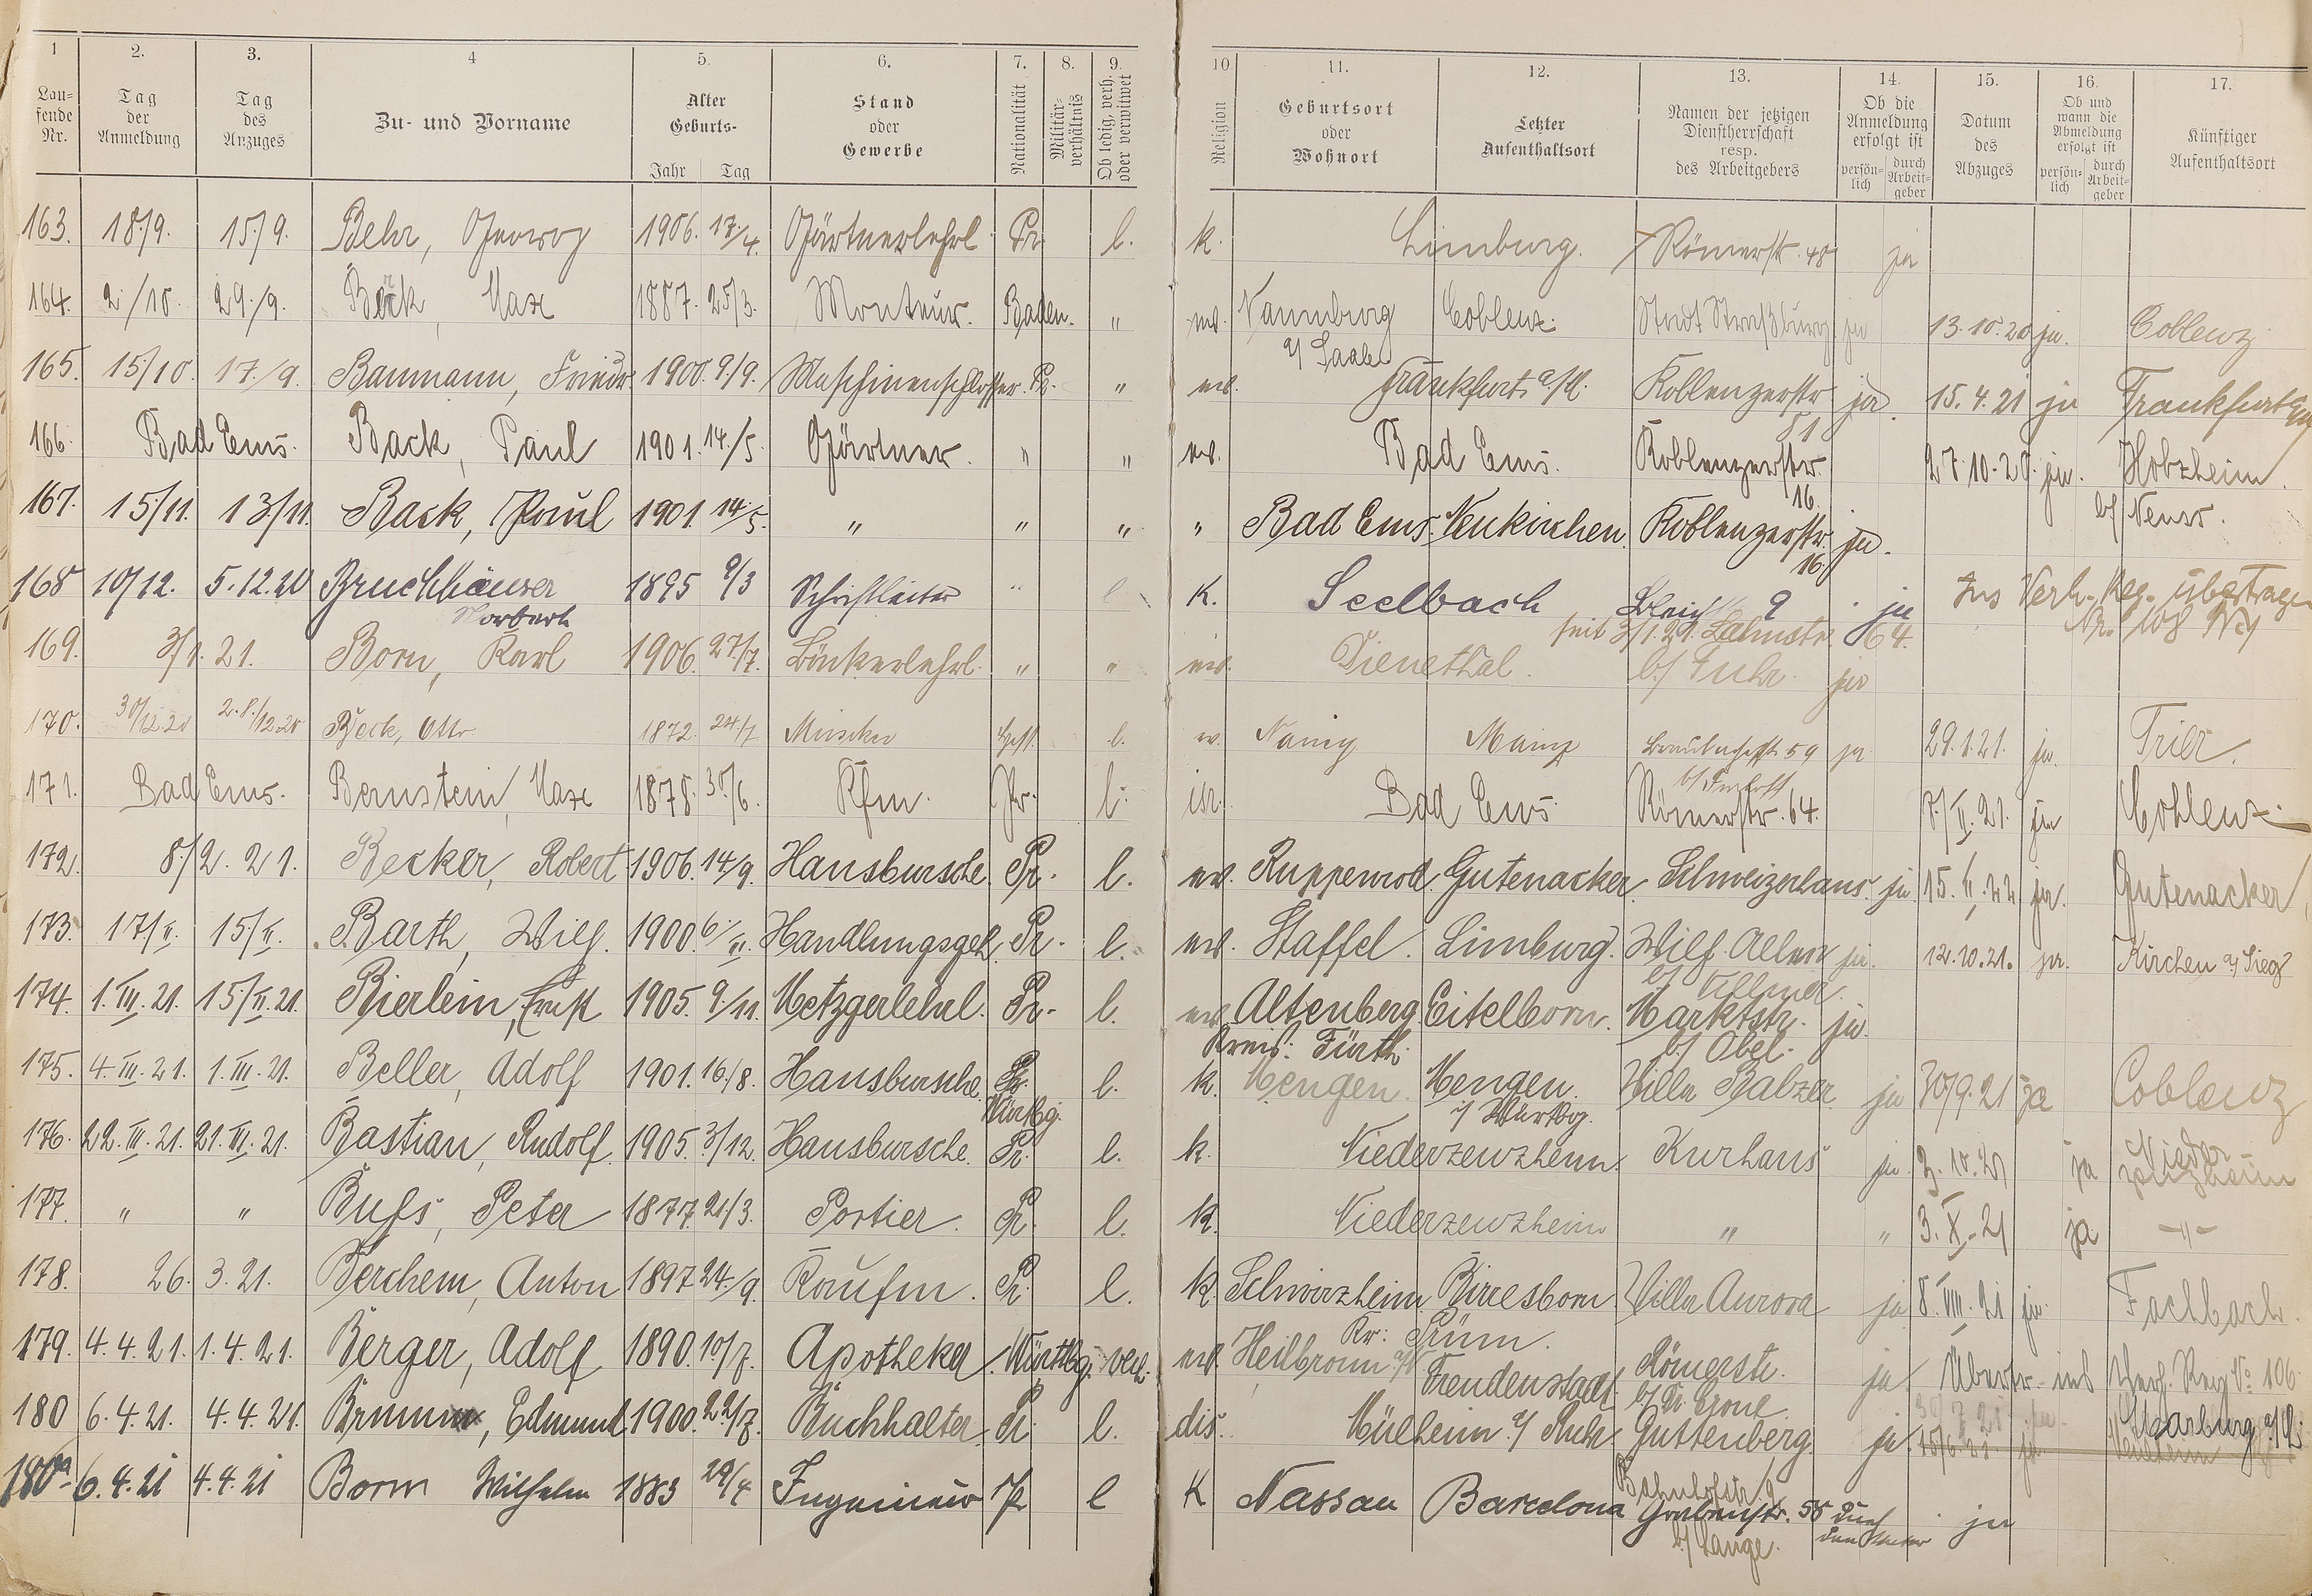 1 2. 3. 4 5. 6. 7. 8. 9. 10 11. 12. 13. 14. 15. 16. 17.
Lau=fende Nr. Tag der Anmeldung Tag des Anzuges Zu- und Vorname Alter Geburts- Jahr Tag Stand oder Gewerbe Nationalität Militär-verhältnis Ob ledig, verh. oder verwitwet Religion Geburtsort oder Wohnort Letzter Aufenthaltsort Namen der jetzigen Dienstherrschaft resp. des Arbeitgebers Ob die Anmeldung erfolgt ist persön-lich durch Arbeit-geber Datum des Abzuges Ob und wann die Abmeldung erfolgt ist persön-lich durch Arbeit-geber Künftiger Aufenthaltsort
163. 18./9. 15./9. Behr, Georg 1906. 17./4. Gärtnerlehrl. Pr. l. k. Limburg. Römerstr. 48 ja
164. 2./10. 29./9. Beck, Max 1887. 25/3. Monteur. Baden. " ev. Naumburg a/ Saale Coblenz. Stadt Straßburg ja 13.10.20 ja. Coblenz
165. 15./10. 17./9. Baumann, Friedr. 1900. 9/9. Maschinenschlosser. Pr. " ev. Frankfurt a/M. Koblenzerstr. 51 ja. 15.4.21 ja Frankfurt
166. Bad Ems. Back, Paul 1901. 14./5. Gärtner. " " ev. Bad Ems. Koblenzerstr. 16. 27.10.20. ja. Holzheim. b/ Neuss.
167. 15./11. 13./11. Back, Paul 1901. 14./5. " " " " Bad Ems. Neukirchen. Koblenzerstr. 16. ja.
168 10/12. 5.12.20 Bruchhäuser Norbert 1895 9/3 Schriftleiter " l K. Seelbach Bleichstr. 9 ja Ins Verh. Reg. übertragen Nr. 108
seit 3/1.21. Lahnstr. 64.
169. 3/1.21. Born, Karl 1906. 27/7. Bäckerlehrl. " " ev. Dienethal. b/ Fuhr. ja
170. 30/12.20 28./12.20 Beck, Otto 1872. 24/7 Musiker Hess. l. ev. Mainz Braubacherstr. 59 ja 29.1.21. ja. Trier.
171. Bad Ems. Bernstein, Max 1878. 30./6. Kfm. Pr. l. isr. Bad Ems. Römerstr. 64. 8./II.21. ja Coblenz.
172. 8./2.21. Becker, Robert 1906. 14./9. Hausbursche. Pr. l. ev. Ruppenrod. Gutenacker. Schweizerhaus. ja. 15.II.22 ja. Gutenacker
173. 17/II. 15/II. Barth, Wilh. 1900. 6/III. Handlungsgeh. Pr. l. ev. Staffel. Limburg. Wilh. ja. 12.10.21. ja. Kirchen a/ Sieg
174. 1.III.21. 15/II.21. Bierlein, Ernst 1905. 9/11. Metzgerlehrl. Pr. l. ev. Altenberg. Kreis: Fürth. Eitelborn. Marktstr. b/ Obel. ja.
175. 4.III.21. 1.III.21. Beller, Adolf 1901. 16./8. Hausbursche. Württbg. l. k. Mengen. Mengen. i/ Württbg. Villa Balzer ja 30/9.21 ja Coblenz
176. 22.III.21. 21.III.21. Bastian, Rudolf 1905. 3./12. Hausbursche. Pr. l. k. Niederzeuzheim. Kurhaus ja 3.10.21 ja Nieder zeuzheim
177. " " Bufs, Peter 1877. 21./3. Portier. Pr. l. k. Niederzeuzheim " " 3.X.21 ja -"-
178. 26.3.21. Berchem, Anton 1897 24./9. Kaufm. Pr. l. k. Schwirzheim Kr: Prüm. Birresborn Villa Aurora ja 8.VIII.21 ja Fachbach.
179. 4.4.21. 1.4.21. Berger, Adolf 1890. 10./7. Apotheker. Württbg. verh. ev. Heilbronn a/N Freudenstadt. Römerstr. ja Übertr. ins Verh. Reg No 106
180 6.4.21. 4.4.21. Edmund 1900. 22/7. Buchhalter. Pr. l. dis. Mülheim a/ Ruhr Guttenberg. ja. 15/6.21. ja. Marburg a/L.
180a 6.4.21 4.4.21 Born Wilhelm 1883 29/4 Ingenieur Pr l K Nassau Barcelona Bahnhofstr. 9 Grabenstr. 58 b/ Lange. ja